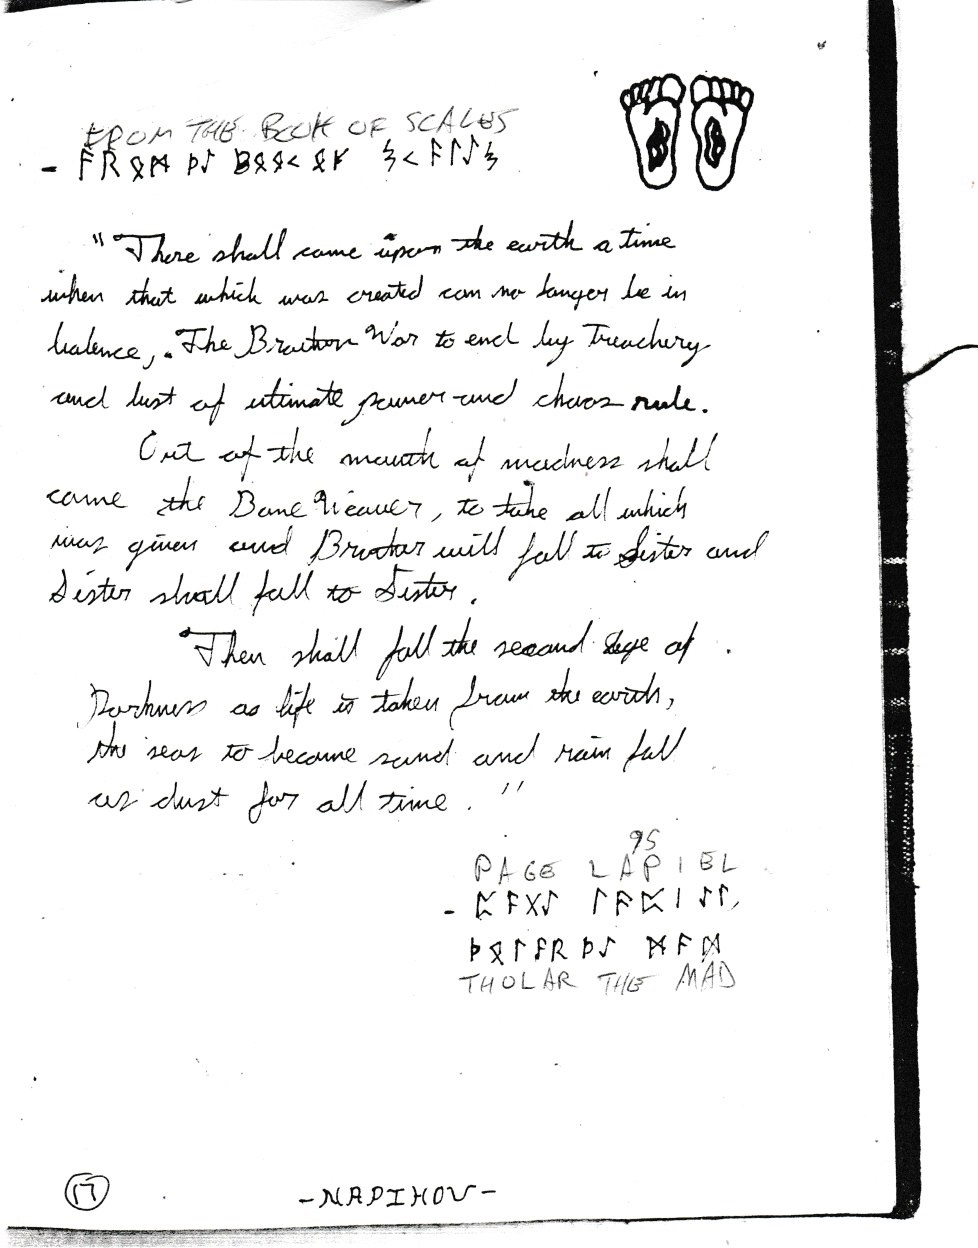 FROM THE BOOK OF SCALES
- ᚨᚱᛟᛗ ᚦᛇ ᛒᛟᛟᚲ ᛟᚠ ᛋᚲᚨᛚᛇᛋ
"There shall come upon the earth a time
when that which was created can no longer be in
balence,. The Brother War to end by Treachery
and lust of ultimate power and chaos rule.
Out of the mouth of madness shall
come the Bane Weaver, to take all which
was given and Brother will fall to Sister and
Sister shall fall to Sister.
Then shall fall the second age of
Darkness as life is taken from the earth,
the seas to become sand and rain fall
as dust for all time."
95
PAGE LAPIEL
- ᛈᚨᚷᛇ ᛚᚨᛈᛁᛇᛚ,
ᚦᛟᛚᚨᚱ ᚦᛇ ᛗᚨᛞ
THOLAR THE MAD
17
-NADIHOV-